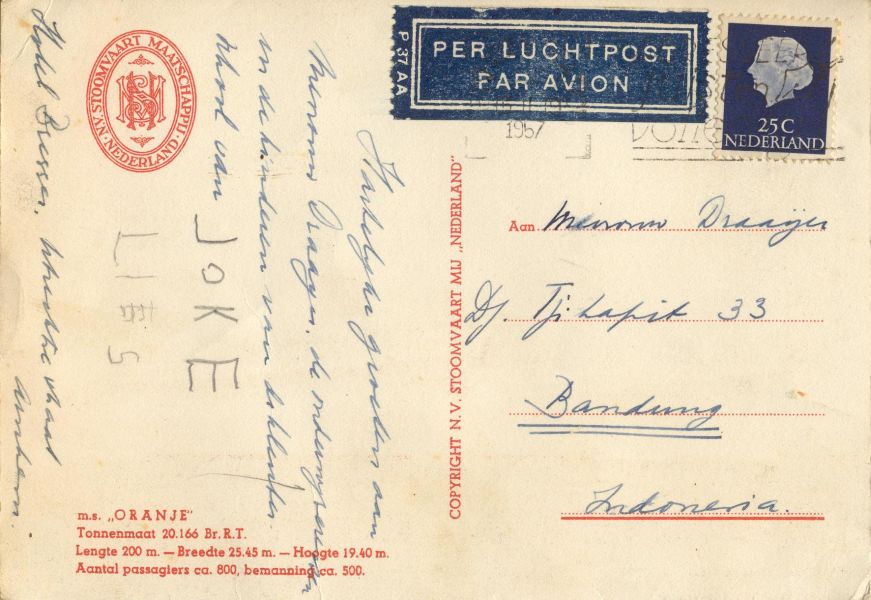 N.V. STOOMVAART MAATSCHAPPIJ
NEDERLAND
P 37 AA
PER LUCHTPOST
PAR AVION
25 C
NEDERLAND
1957
Aan Mevrouw Draaijer
Dj. Tjitapit 33
Bandung
Indonesia.
COPYRIGHT N.V. STOOMVAART MIJ „NEDERLAND"
Hartelijke groeten aan
Mevrouw Draayer, de onderwijzeressen
en de kinderen van de kleuter
school van
JOKE
LIES
Hotel Bresser, straat
Arnhem.
m.s. „ORANJE"
Tonnenmaat 20.166 Br.R.T.
Lengte 200 m. — Breedte 25.45 m. — Hoogte 19.40 m.
Aantal passagiers ca. 800, bemanning ca. 500.